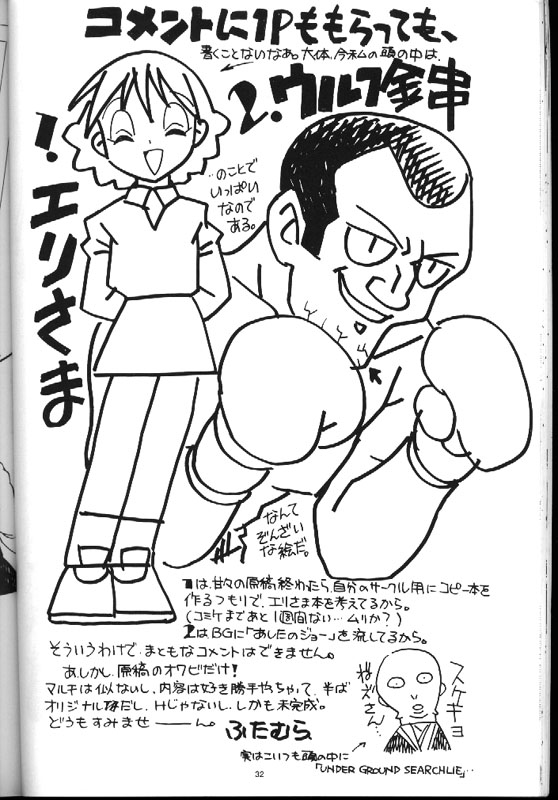 コメントに1Pももらっても、
書くことないなあ。大体、今私の頭の中は、
1.エリさま
2.ウルフ金串
…のことで
いっぱい
なので
ある。
なんて
ぞんざい
な絵だ。
1は、甘々の原稿終わったら、自分のサークル用にコピー本を
作るつもりで、エリさま本を考えてるから。
(コミケまであと1週間ない…ムリか?)
2はBGに「あしたのジョー」を流してるから。
そういうわけで、まともなコメントはできません。
あ、しかし、原稿のオワビだけ!
マルチは似ないし、内容は好き勝手やっちゃって、半ば
オリジナル体だし、Hじゃないし、しかも未完成。
どうもすみませ――ん。
ふたむら
スケキヨ
ねえさん…
実はこいつも頭の中に
「UNDER GROUND SEARCHLIE」…
32